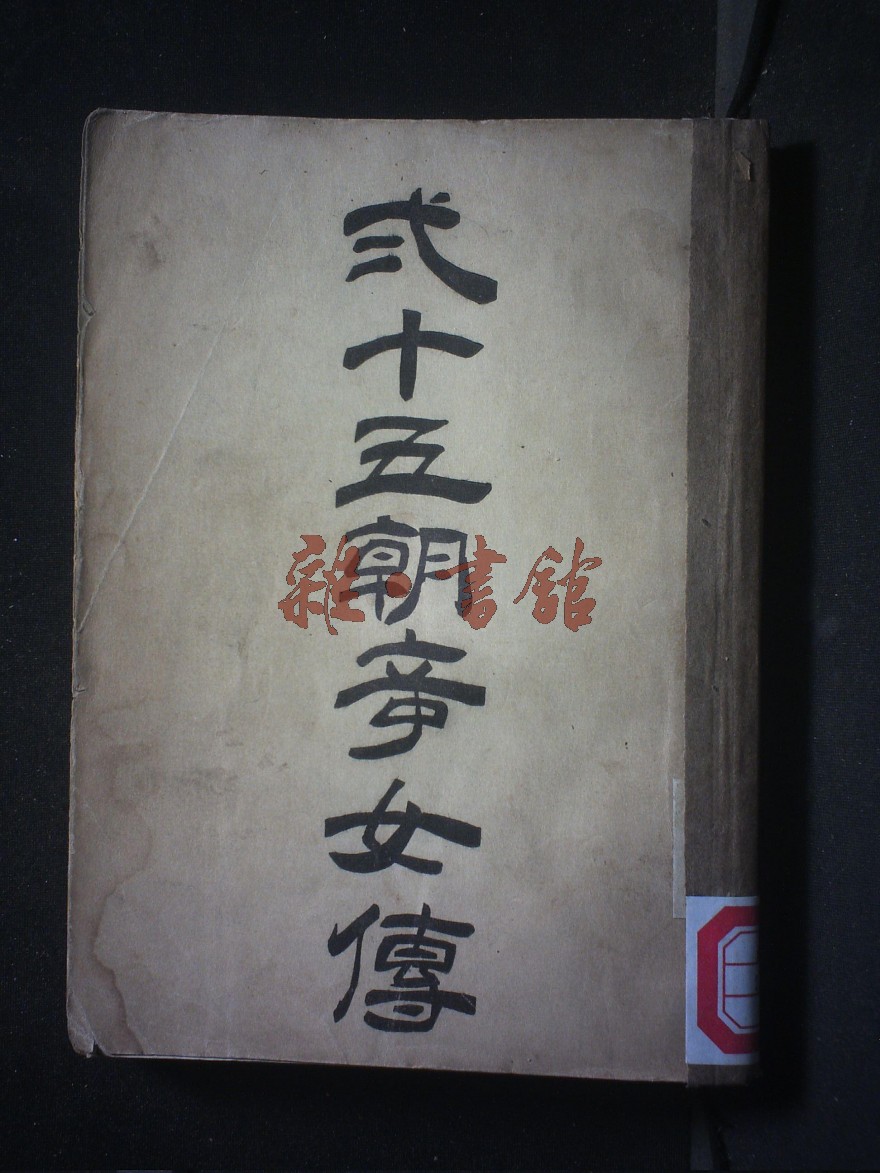 弍十五朝帝女傳
雜·書館